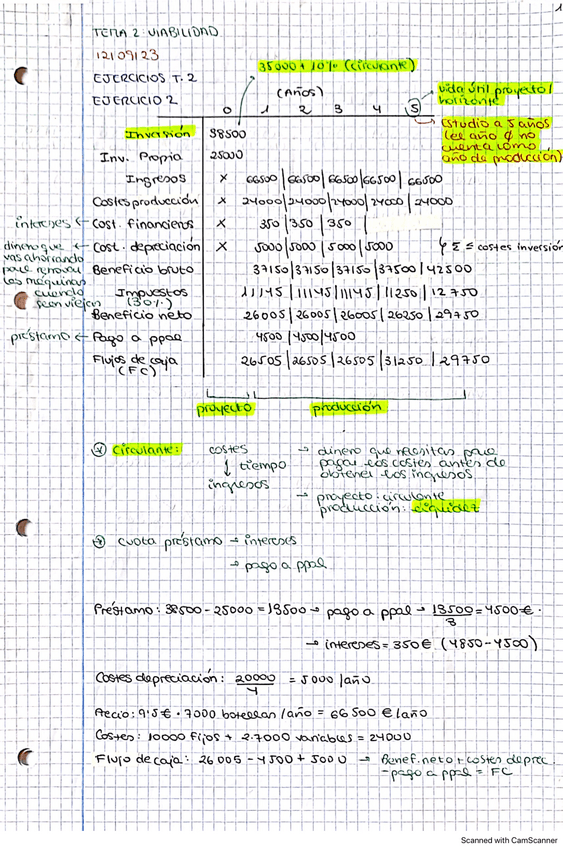 1
TEMA 2: VIABILIDAD
12/09/23
EJERCICIOS T.2
EJERCICIO 2
35000 + 10% (circulante)
(AÑOS)
0 1 2 3 4 5
vida útil proyecto/
horizonte
Estudio a 5 años
(el año 0 no
cuenta como
año de producción)
Inversión 38500
Inv. Propia 25000
Ingresos x 66500 | 66500 | 66500 | 66500 | 66500
Costes producción x 24000 | 24000 | 24000 | 24000 | 24000
intereses ← Cost. financieros x 350 | 350 | 350 |
dinero que vas ahorrando para renovar las máquinas cuando sean viejas ← Cost. depreciación x 5000 | 5000 | 5000 | 5000 Σ ≤ costes inversión
Beneficio bruto 37150 | 37150 | 37150 | 37500 | 42500
Impuestos (30%) 11145 | 11145 | 11145 | 11250 | 12750
Beneficio neto 26005 | 26005 | 26005 | 26250 | 29750
préstamo ← Pago a ppal 4500 | 4500 | 4500
Flujos de caja (FC) 26505 | 26505 | 26505 | 31250 | 29750
proyecto producción
* Circulante: costes → dinero que necesitas para
↓ tiempo pagar los costes antes de
ingresos obtener los ingresos
→ proyecto: circulante
producción: liquidez
* cuota préstamo → intereses
→ pago a ppal
Préstamo: 38500 - 25000 = 13500 → pago a ppal → 13500/3 = 4500€.
→ intereses = 350€ (4850 - 4500)
Costes depreciación: 20000/4 = 5000 /año
Precio: 9'5€ · 7000 botellas /año = 66500 €/año
Costes: 10000 fijos + 2·7000 variables = 24000
Flujo de caja: 26005 - 4500 + 5000 → Benef. neto + costes deprec.
- pago a ppal = FC
Scanned with CamScanner